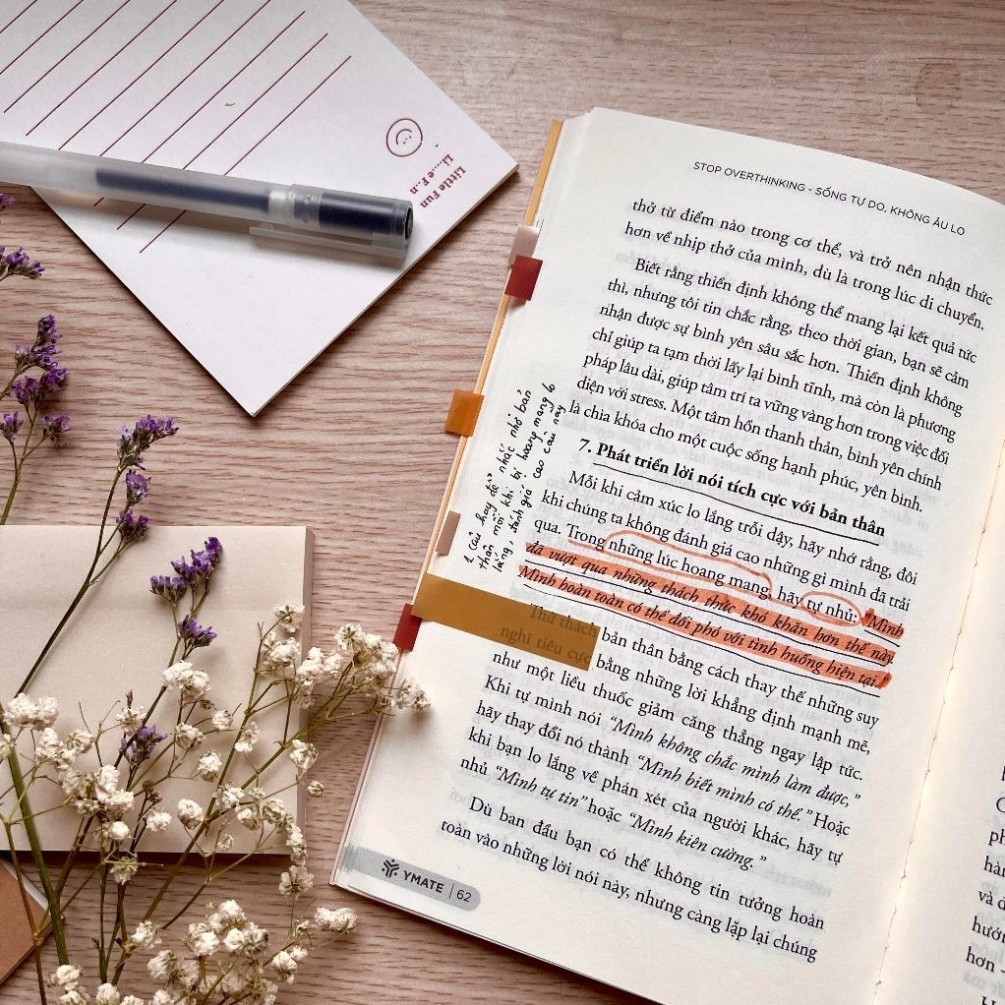 Little Fun
Li...e F..n
STOP OVERTHINKING - SỐNG TỰ DO, KHÔNG ÂU LO
thở từ điểm nào trong cơ thể, và trở nên nhận thức
hơn về nhịp thở của mình, dù là trong lúc di chuyển.
Biết rằng thiền định không thể mang lại kết quả tức
thì, nhưng tôi tin chắc rằng, theo thời gian, bạn sẽ cảm
nhận được sự bình yên sâu sắc hơn. Thiền định không
chỉ giúp ta tạm thời lấy lại bình tĩnh, mà còn là phương
pháp lâu dài, giúp tâm trí ta vững vàng hơn trong việc đối
diện với stress. Một tâm hồn thanh thản, bình yên chính
là chìa khóa cho một cuộc sống hạnh phúc, yên bình.
7. Phát triển lời nói tích cực với bản thân
Mỗi khi cảm xúc lo lắng trỗi dậy, hãy nhớ rằng, đôi
khi chúng ta không đánh giá cao những gì mình đã trải
qua. Trong những lúc hoang mang, hãy tự nhủ: "Mình
đã vượt qua những thách thức khó khăn hơn thế này.
Mình hoàn toàn có thể đối phó với tình huống hiện tại."
Thử thách bản thân bằng cách thay thế những suy
nghĩ tiêu cực bằng những lời khẳng định mạnh mẽ,
như một liều thuốc giảm căng thẳng ngay lập tức.
Khi tự mình nói "Mình không chắc mình làm được,"
hãy thay đổi nó thành "Mình biết mình có thể." Hoặc
khi bạn lo lắng về phán xét của người khác, hãy tự
nhủ "Mình tự tin" hoặc "Mình kiên cường."
Dù ban đầu bạn có thể không tin tưởng hoàn
toàn vào những lời nói này, nhưng càng lặp lại chúng
YMATE | 62
2 câu hay để nhắc nhở bản
thân mỗi khi bị hoang mang lo
lắng, đánh giá cao câu này
và đ
hướn
hơn